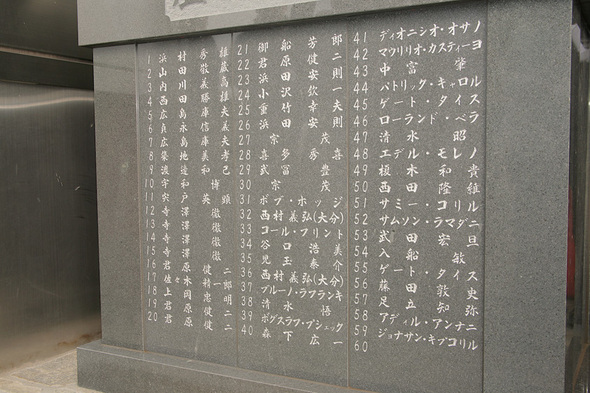 1 浜村秀雄
2 山田敬蔵
3 内川義高
4 西田勝雄
5 広島庫夫
6 貞永信義
7 広島庫夫
8 築地美孝
9 渡辺和己
10 宇和博
11 宍戸英顕
12 寺澤徹
13 寺澤徹
14 寺澤徹
15 寺澤徹
16 君原健二
17 佐々木精一郎
18 上岡忠明
19 君原健二
20 君原健二
21 御船芳郎
22 君原健二
23 浜田安則
24 小沢欽一
25 重竹幸夫
26 浜田安則
27 宗茂
28 喜多秀喜
29 武冨豊
30 宗茂
31 ボブ・ホッジ
32 西村義弘(大分)
33 コール・フリント
34 谷口浩美
35 児玉泰介
36 西村義弘(大分)
37 ブルーノ・ラフランキ
38 清水悟
39 ボグスラフ・プシェック
40 森下広一
41 ディオニシオ・オサノ
42 マウリリオ・カスティーヨ
43 中冨肇
44 パトリック・キャロル
45 ゲート・タイス
46 ローランド・ベラ
47 清水昭
48 エデル・モレノ
49 榎木和貴
50 西田隆維
51 サミー・コリル
52 サムソン・ラマダニ
53 武田宏旦
54 入船敏
55 ゲート・タイス
56 藤田敦史
57 足立知弥
58 アディル・アンナニ
59 ジョナサン・キプコリル
60